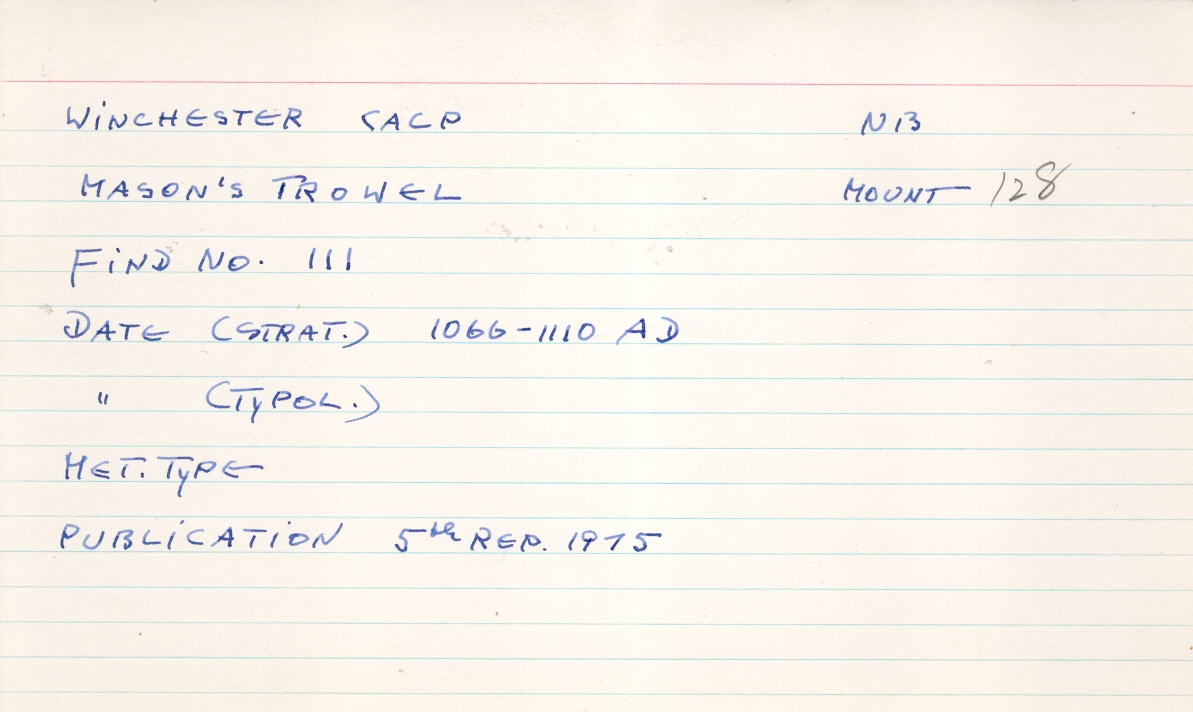 WINCHESTER CACP N13
MASON'S TROWEL MOUNT 128
FIND NO. 111
DATE (STRAT.) 1066-1110 AD
" (TYPOL.)
MET. TYPE
PUBLICATION 5th REP. 1975